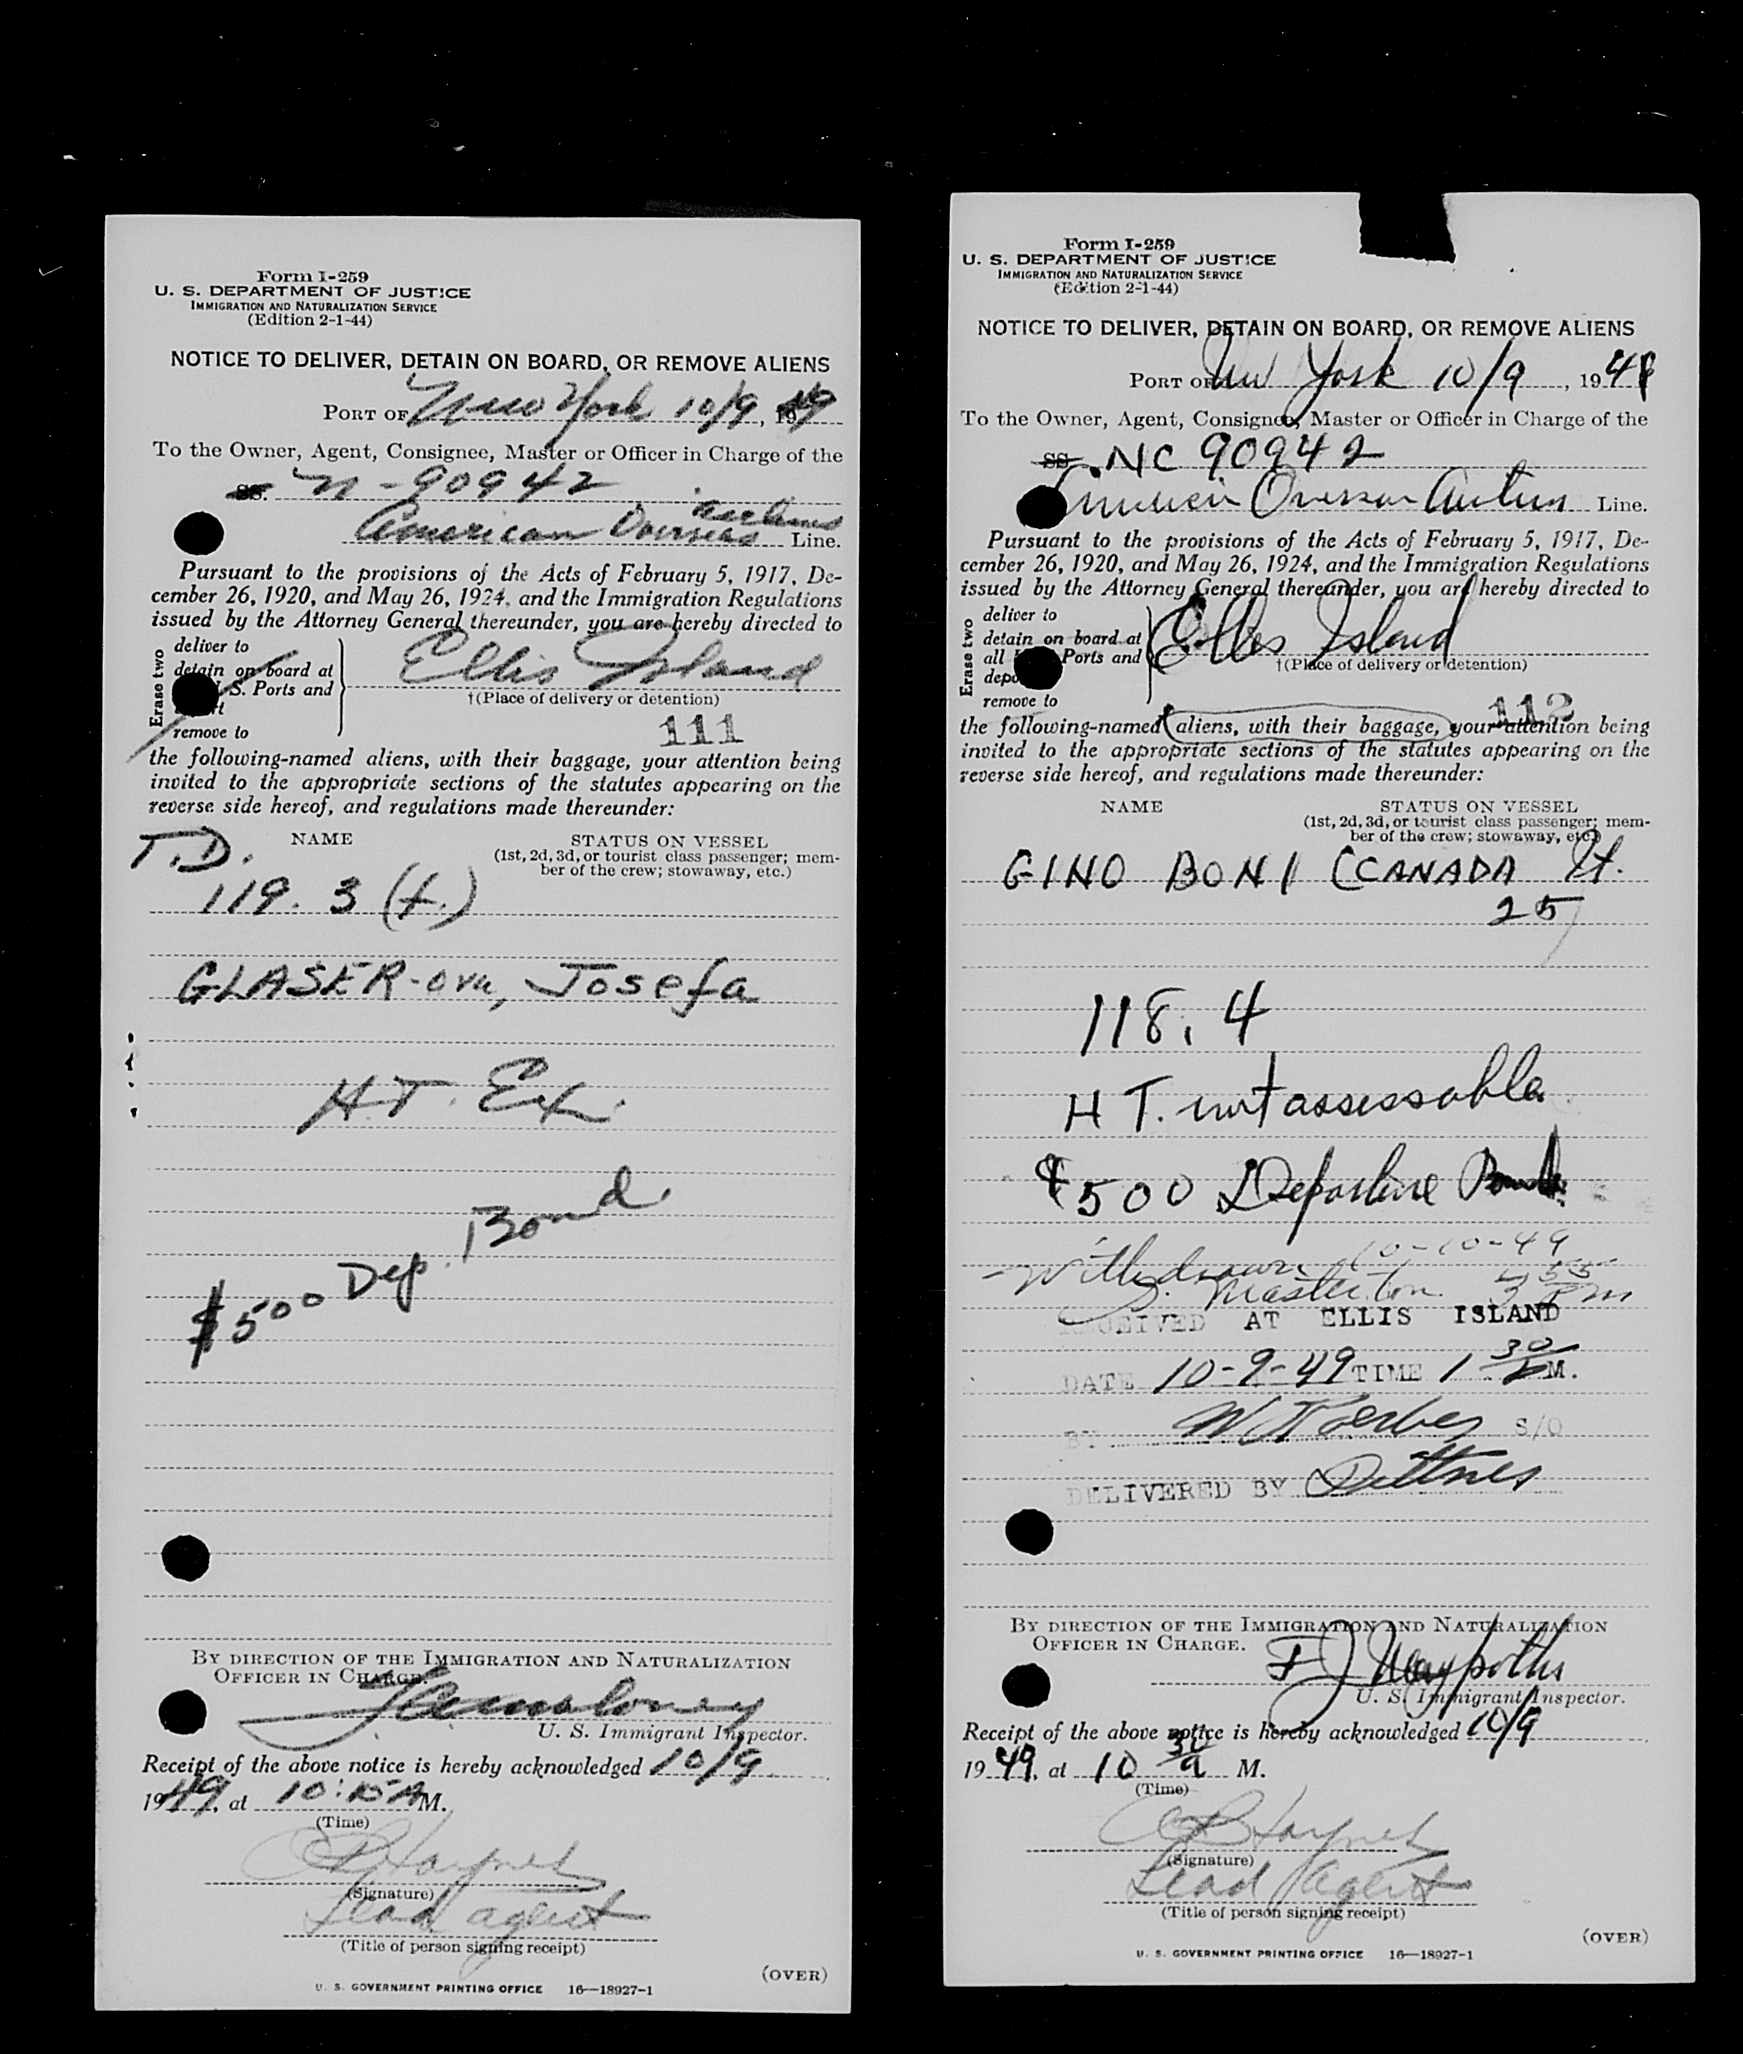 Form I-259
U. S. DEPARTMENT OF JUSTICE
IMMIGRATION AND NATURALIZATION SERVICE
(Edition 2-1-44)
NOTICE TO DELIVER, DETAIN ON BOARD, OR REMOVE ALIENS
PORT OF New York 10/9, 1949
To the Owner, Agent, Consignee, Master or Officer in Charge of the
SS. N-90942
Airlines
American Overseas Line.
Pursuant to the provisions of the Acts of February 5, 1917, De-
cember 26, 1920, and May 26, 1924, and the Immigration Regulations
issued by the Attorney General thereunder, you are hereby directed to
Erase two
deliver to
detain on board at
S. Ports and
remove to
Ellis Island
†(Place of delivery or detention)
111
the following-named aliens, with their baggage, your attention being
invited to the appropriate sections of the statutes appearing on the
reverse side hereof, and regulations made thereunder:
T.D.
NAME
STATUS ON VESSEL
(1st, 2d, 3d, or tourist class passenger; mem-
ber of the crew; stowaway, etc.)
119. 3 (f.)
GLASER-ova, Josefa
H.T. Ex.
$500 Dep. Bond.
BY DIRECTION OF THE IMMIGRATION AND NATURALIZATION
OFFICER IN CHARGE.
U. S. Immigrant Inspector.
Receipt of the above notice is hereby acknowledged 10/9
1949, at 10:15 A M.
(Time)
Haynes
(Signature)
Lead agent
(Title of person signing receipt)
(OVER)
U. S. GOVERNMENT PRINTING OFFICE 16—18927-1
Form I-259
U. S. DEPARTMENT OF JUSTICE
IMMIGRATION AND NATURALIZATION SERVICE
(Edition 2-1-44)
NOTICE TO DELIVER, DETAIN ON BOARD, OR REMOVE ALIENS
PORT OF New York 10/9, 194
To the Owner, Agent, Consignee, Master or Officer in Charge of the
SS. NC 90942
American Overseas Line.
Pursuant to the provisions of the Acts of February 5, 1917, De-
cember 26, 1920, and May 26, 1924, and the Immigration Regulations
issued by the Attorney General thereunder, you are hereby directed to
Erase two
deliver to
detain on board at
all Ports and
remove to
Ellis Island
†(Place of delivery or detention)
112
the following-named aliens, with their baggage, your attention being
invited to the appropriate sections of the statutes appearing on the
reverse side hereof, and regulations made thereunder:
NAME
STATUS ON VESSEL
(1st, 2d, 3d, or tourist class passenger; mem-
ber of the crew; stowaway, etc.)
GINO BONI (CANADA It.
25
118. 4
H T. not assessable
$500 Departure Bond
Withdrawn 10-10-49
RECEIVED AT ELLIS ISLAND
DATE 10-9-49 TIME 1 30 P M.
BY S/O
DELIVERED BY
BY DIRECTION OF THE IMMIGRATION AND NATURALIZATION
OFFICER IN CHARGE.
U. S. Immigrant Inspector.
Receipt of the above notice is hereby acknowledged 10/9
1949, at 10 30 a M.
(Time)
Haynes
(Signature)
Lead Agent
(Title of person signing receipt)
(OVER)
U. S. GOVERNMENT PRINTING OFFICE 16—18927-1